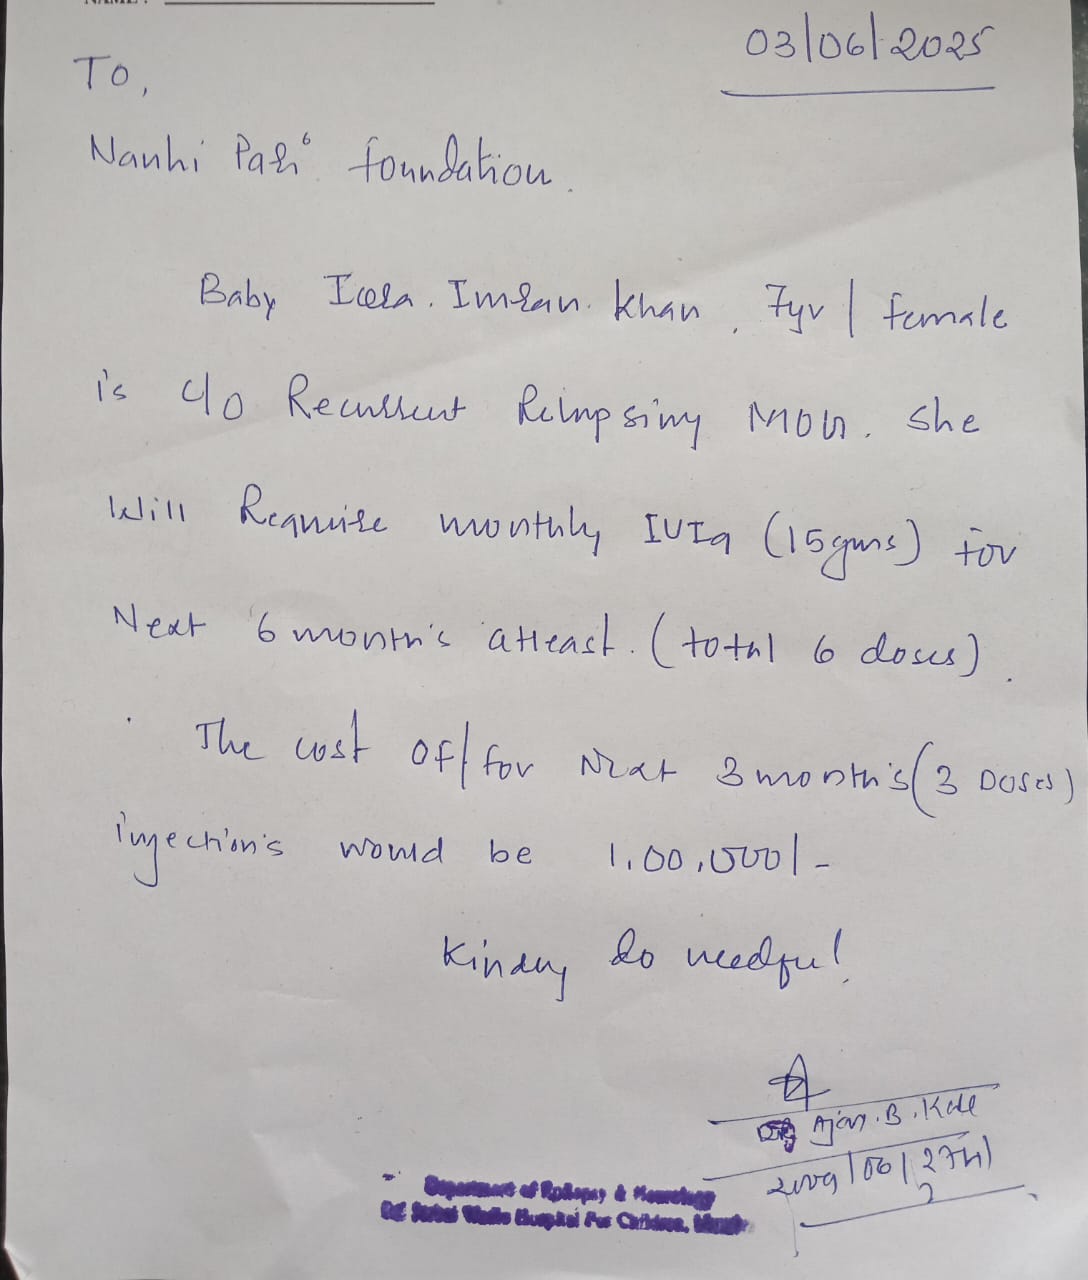 NAME :
03/06/2025
To,
Nanhi Pari foundation.
Baby Imran. Khan, 7yr | female
is c/o Recurrent Relapsing MOG. She
Will Require monthly IVIg (15gms) for
Next 6 month's atleast. (total 6 doses).
The cost of/for Next 3 month's (3 Doses)
injection's would be 1,00,000/-
Kindly do needful!
Dr Ajay. B. Kale
2009/06/2741
Department of Epilepsy & Neurology
B.J. Wadia Hospital For Children, Mumbai